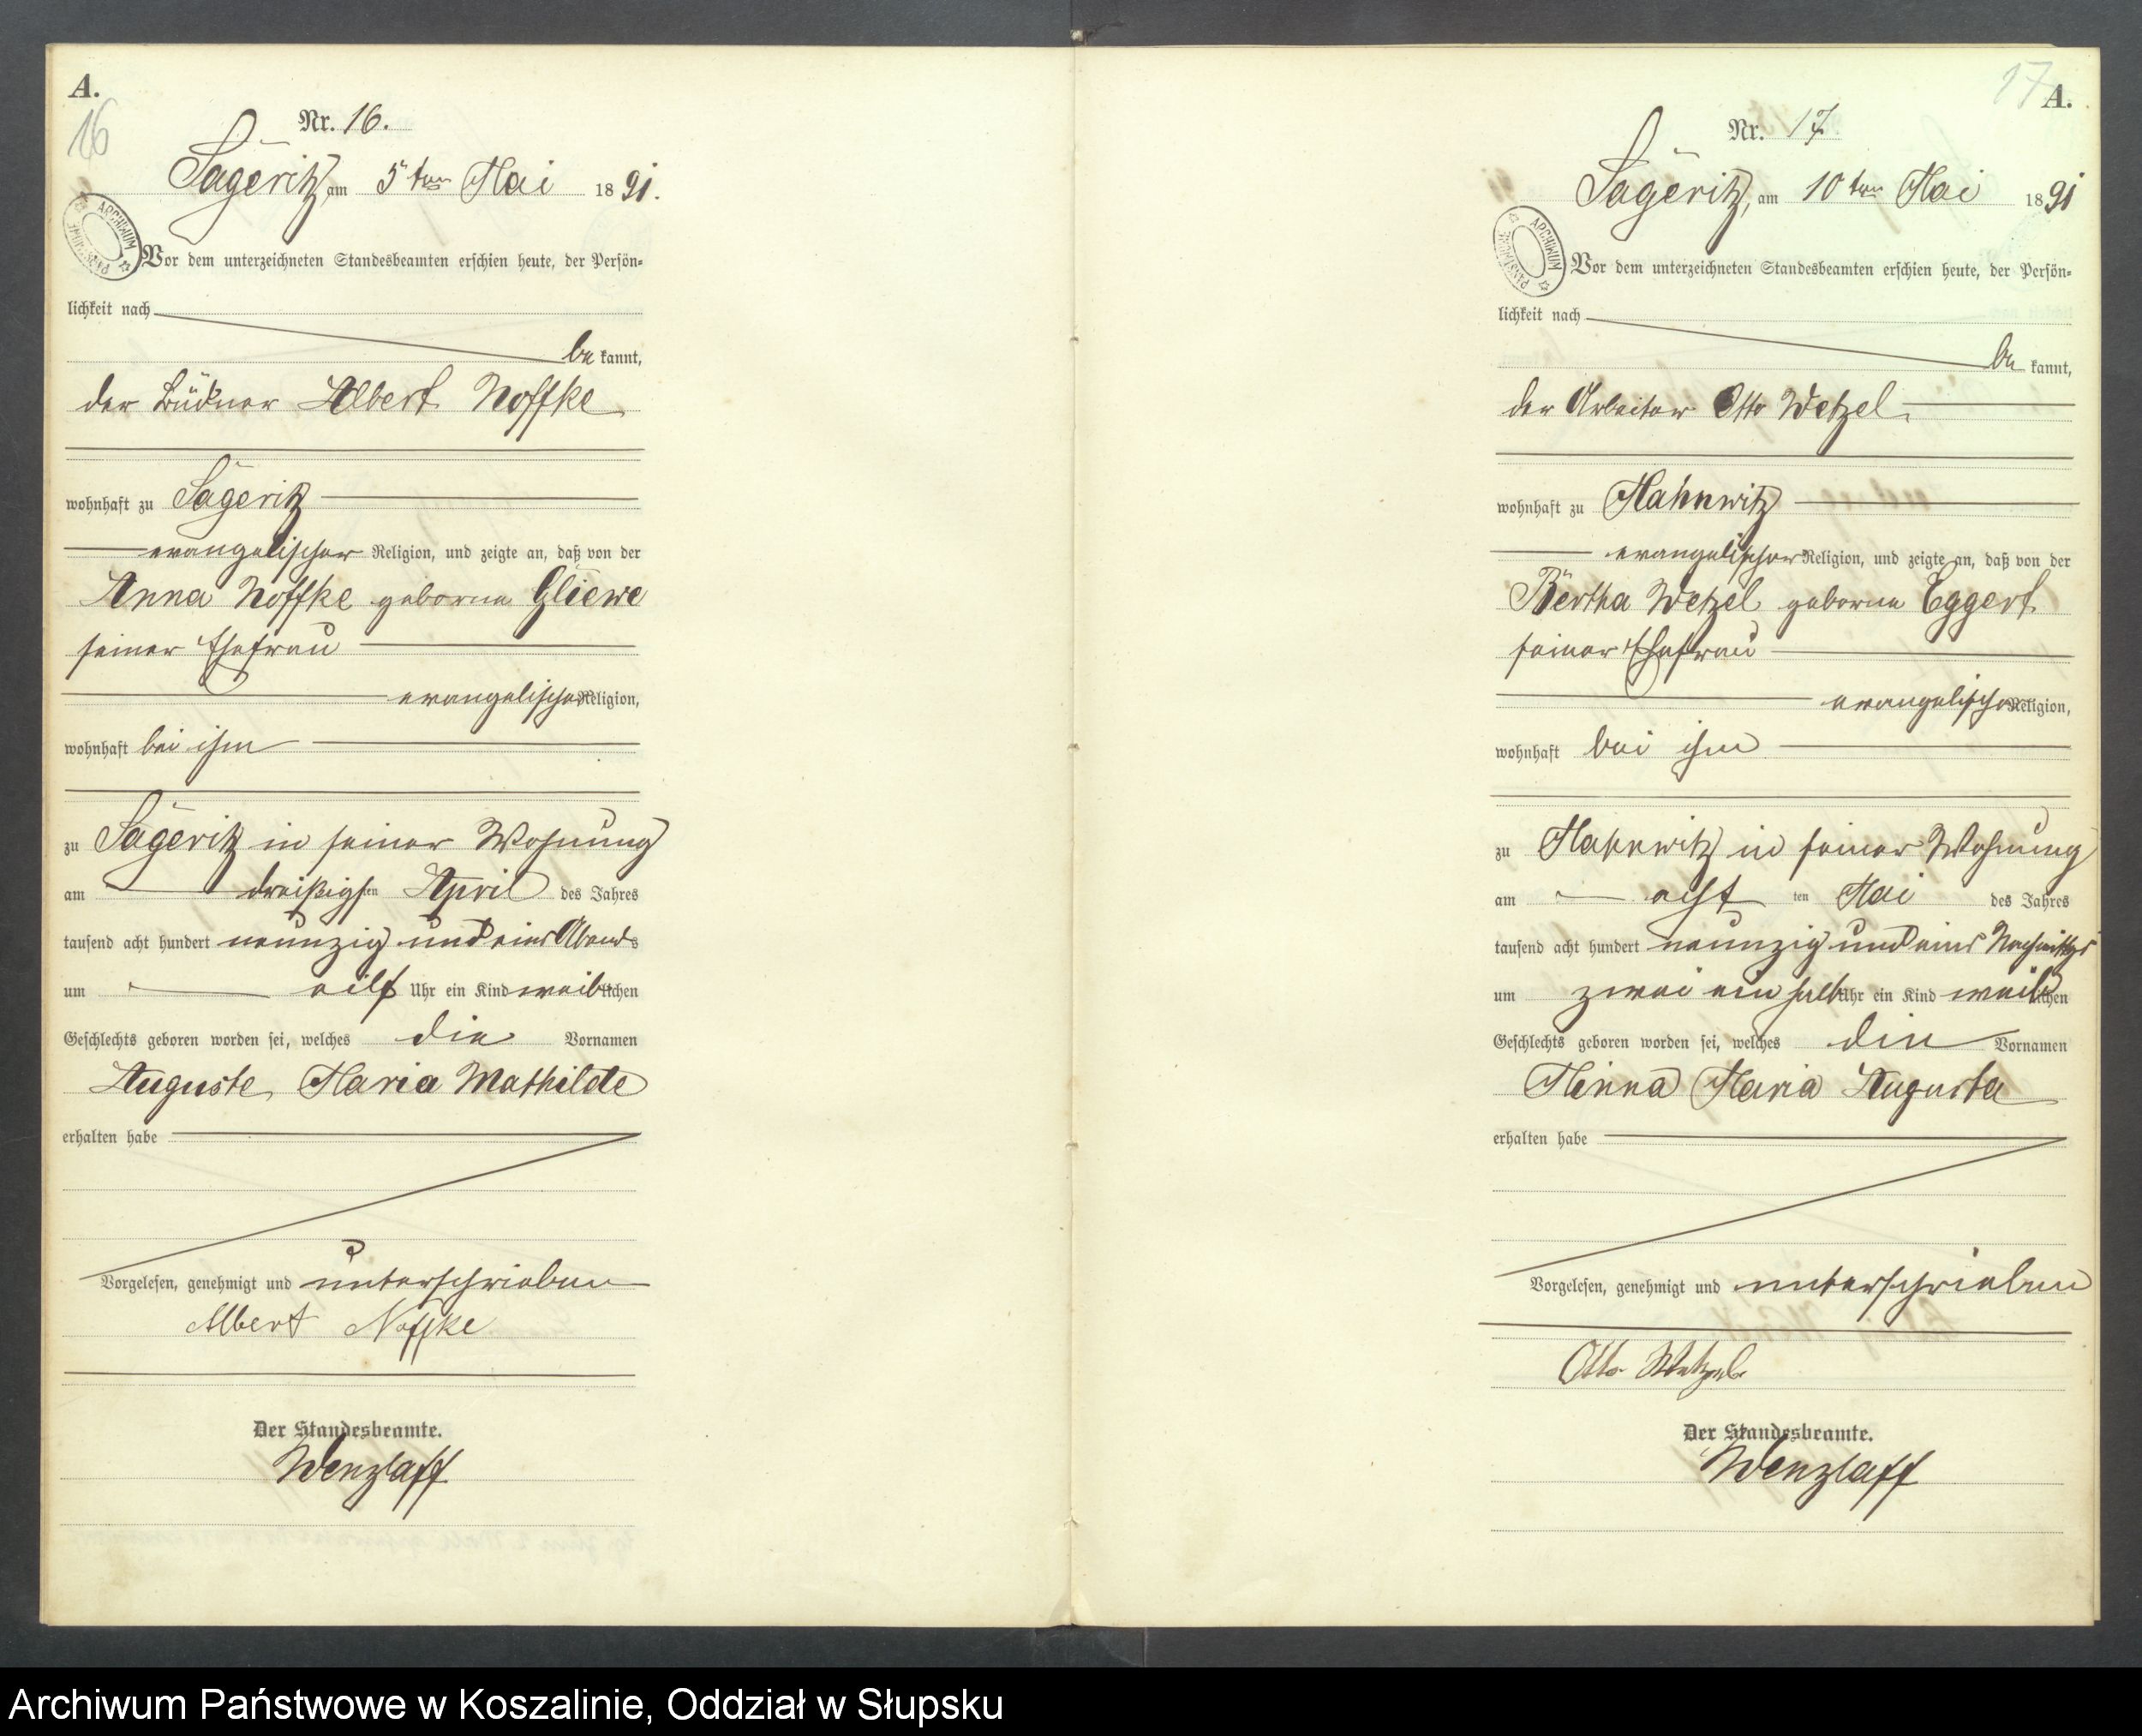 A.
16
Nr. 16.
Sageritz, am 5ten Mai 1891.
ARCHIWUM PAŃSTWOWE
Vor dem unterzeichneten Standesbeamten erschien heute, der Persön=
lichkeit nach
be kannt,
der Büdner Albert Noffke
wohnhaft zu Sageritz
evangelischer Religion, und zeigte an, daß von der
Anna Noffke geborne Gliewe
seiner Ehefrau
evangelischer Religion,
wohnhaft bei ihm
zu Sageritz in seiner Wohnung
am dreißigsten April des Jahres
tausend acht hundert neunzig und eins Abends
um eilf Uhr ein Kind weiblichen
Geschlechts geboren worden sei, welches die Vornamen
Auguste Maria Mathilde
erhalten habe
Vorgelesen, genehmigt und unterschrieben
Albert Noffke
Der Standesbeamte.
Wenzlaff
17
A.
Nr. 17
Sageritz, am 10ten Mai 1891
ARCHIWUM PAŃSTWOWE
Vor dem unterzeichneten Standesbeamten erschien heute, der Persön=
lichkeit nach
be kannt,
der Arbeiter Otto Wetzel
wohnhaft zu Mahnwitz
evangelischer Religion, und zeigte an, daß von der
Bertha Wetzel geborne Eggert
seiner Ehefrau
evangelischer Religion,
wohnhaft bei ihm
zu Mahnwitz in seiner Wohnung
am acht ten Mai des Jahres
tausend acht hundert neunzig und eins Nachmittags
um zwei ein halb Uhr ein Kind weiblichen
Geschlechts geboren worden sei, welches die Vornamen
Minna Maria Augusta
erhalten habe
Vorgelesen, genehmigt und unterschrieben
Otto Wetzel
Der Standesbeamte.
Wenzlaff
Archiwum Państwowe w Koszalinie, Oddział w Słupsku